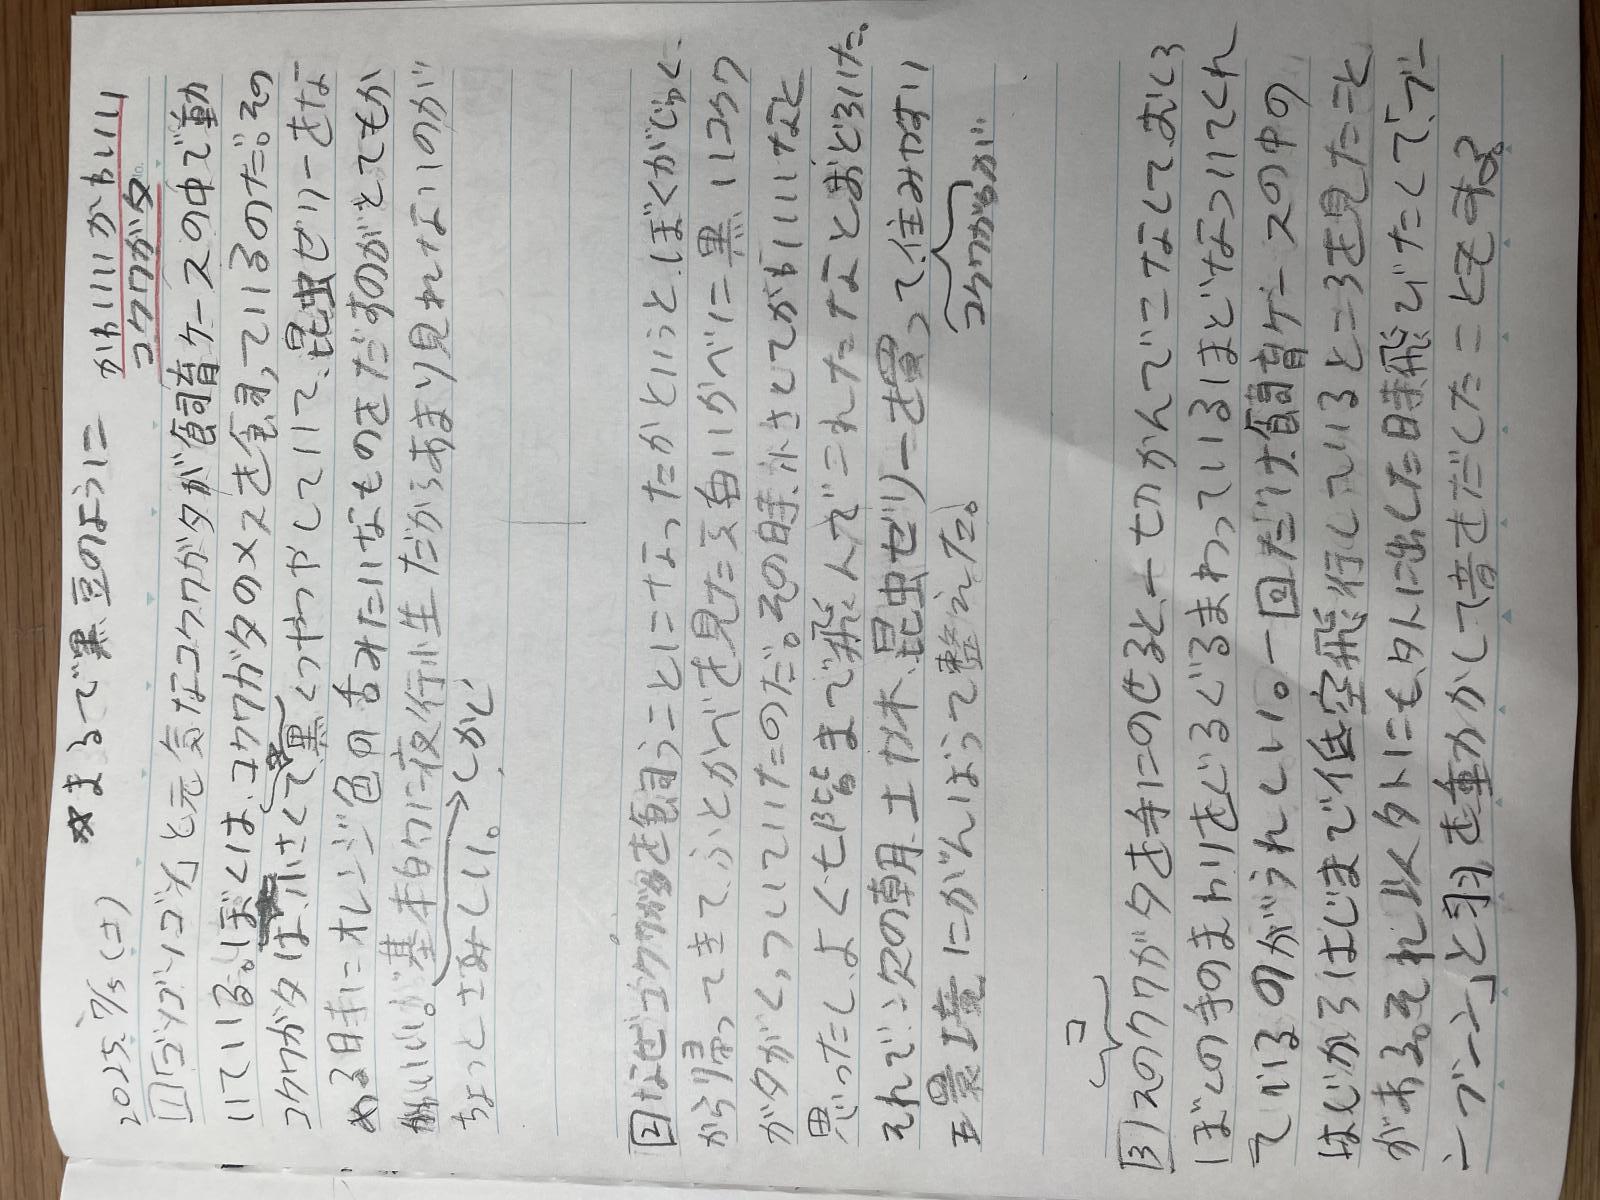 かわいいかわいい
コクワガタ
*まるで黒豆のように
2025、7/5(土)
1「ゴソゴソ」と元気なコクワガタが飼育ケースの中で動
いている。ぼくは、コクワガタのメスを飼っているのだ。その
コクワガタは小さくて*黒くつやつやしていて、昆虫ゼリーをな
める時にオレンジ色の舌みたいなものをだすのがとてもか
わいい。基本的に夜行性だからあまり見れないのが
ちょっとさみしい。 しかし
2なぜコクワガタを飼うことになったかというと、ぼくがじゅく
から帰ってきて、ふとかべを見たら白いかべに黒いコクワ
ガタがくっついていたのだ。その時、小さくてかわいいなと
思ったし、よく七階まで飛んでこれたなとおどろいた。
それで、次の朝、土、木、昆虫ゼリーを買って、住みやすい
コクワガタが
環境にがんばって整えた。
コ
3クワガタを手にのせると、一切かんでこなくて、むしろ
ぼくの手のまわりをぐるぐるまわっているほどなついてくれ
ているのがうれしい。一回だけ、飼育ケースの中の
はじからはじまで低空飛行しているところを見たこと
がある。それ以外にも、外に出した時飛びたくて、「ブー
ンブーン」と羽を動かして音をだしたこともある。